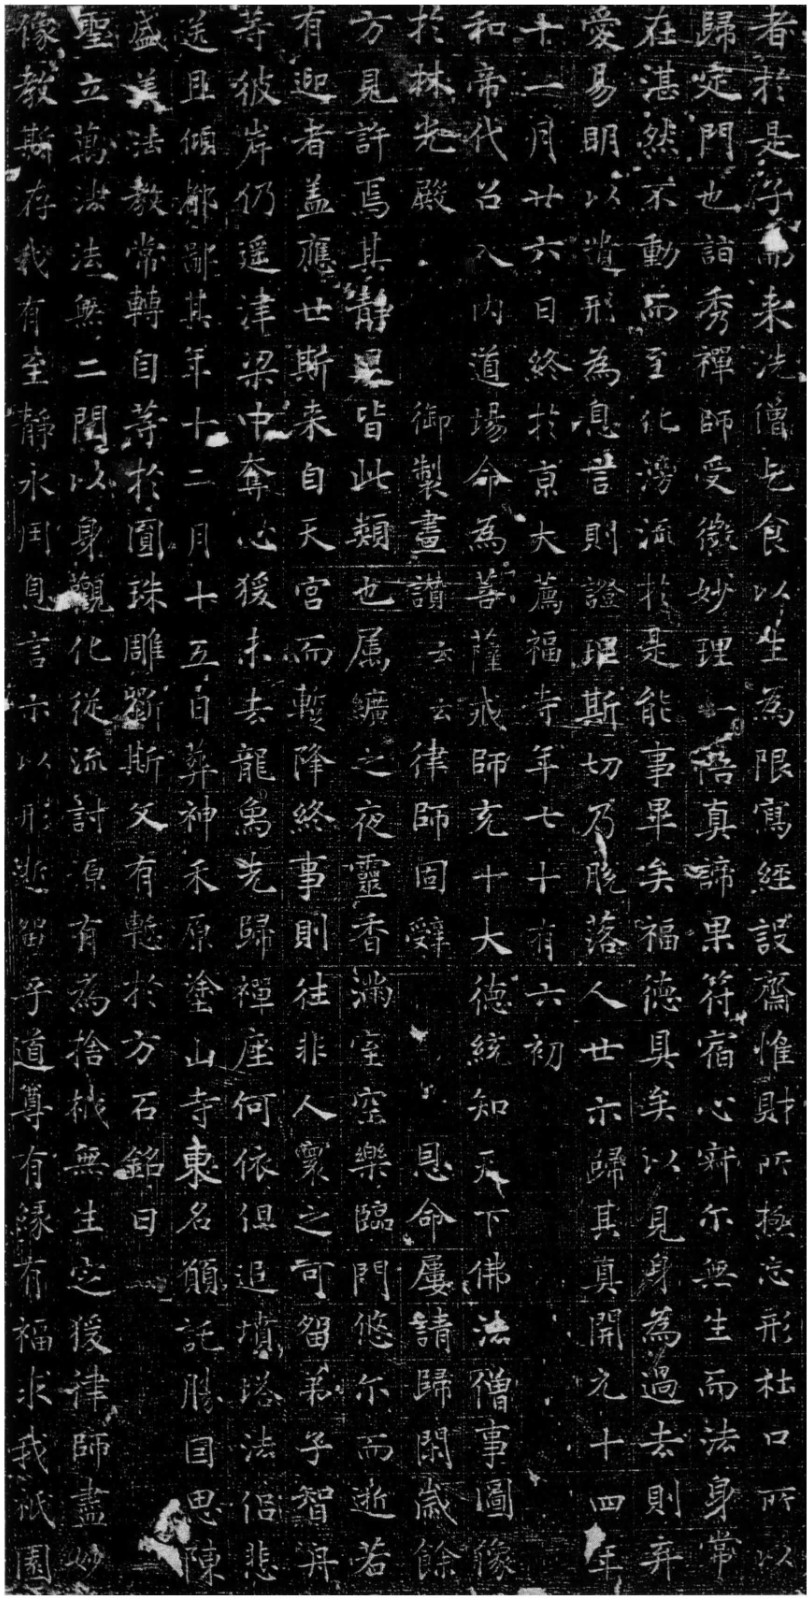 者於是乎而来洗僧乞食以生為限寫經設齋惟財所極忘形杜口所以
歸定門也詣秀禪師受微妙理一悟真諦果符宿心寂尒無生而法身常
在湛然不動而至化滂流於是能事畢矣福德具矣以見身為過去則弃
愛易明以遺形為息言則證理斯切乃脫落人世示歸其真開元十四年
十一月廿六日終於京大薦福寺年七十有六初
和帝代召入內道場命為菩薩戒師充十大德統知天下佛法僧事圖像
於林光殿 御製畫讃云云律師固辤 恩命屢請歸閑歲餘
方見許焉其靜退皆此類也属纊之夜靈香滿室空樂臨門悠尒而逝若
有迎者盖應世斯来自天宮而蹔降終事則往非人寰之可留弟子智舟
等彼岸仍遥津梁中奪心猨未去龍象先歸禪座何依俱追墳塔法侣悲
送且傾都鄙其年十二月十五日葬神禾原塗山寺東名願託勝因思陳
盛美法教常轉自等於圓珠雕斲斯文有慙於方石銘曰
聖立萬法法無二門以身觀化從流討源有為捨栰無生㝎猨律師盡妙
像教斯存我有至靜永用息言示以形逝留乎道尊有緣有福求我祇園